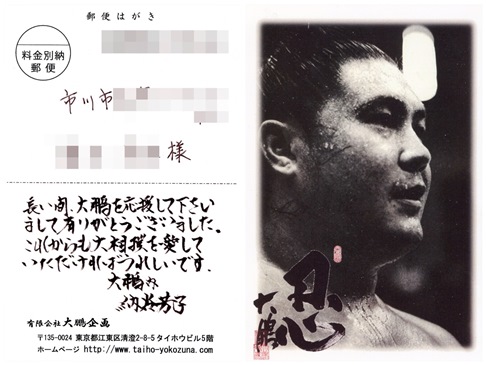 郵便はがき
料金別納
郵便
市川市
様
長い間、大鵬を応援して下さい
まして有りがとうございました。
これからも大相撲を愛して
いただければうれしいです。
大鵬内
納谷芳子
有限会社 大鵬企画
〒135-0024 東京都江東区清澄2-8-5タイホウビル5階
ホームページ http://www.taiho-yokozuna.com/
忍
大鵬